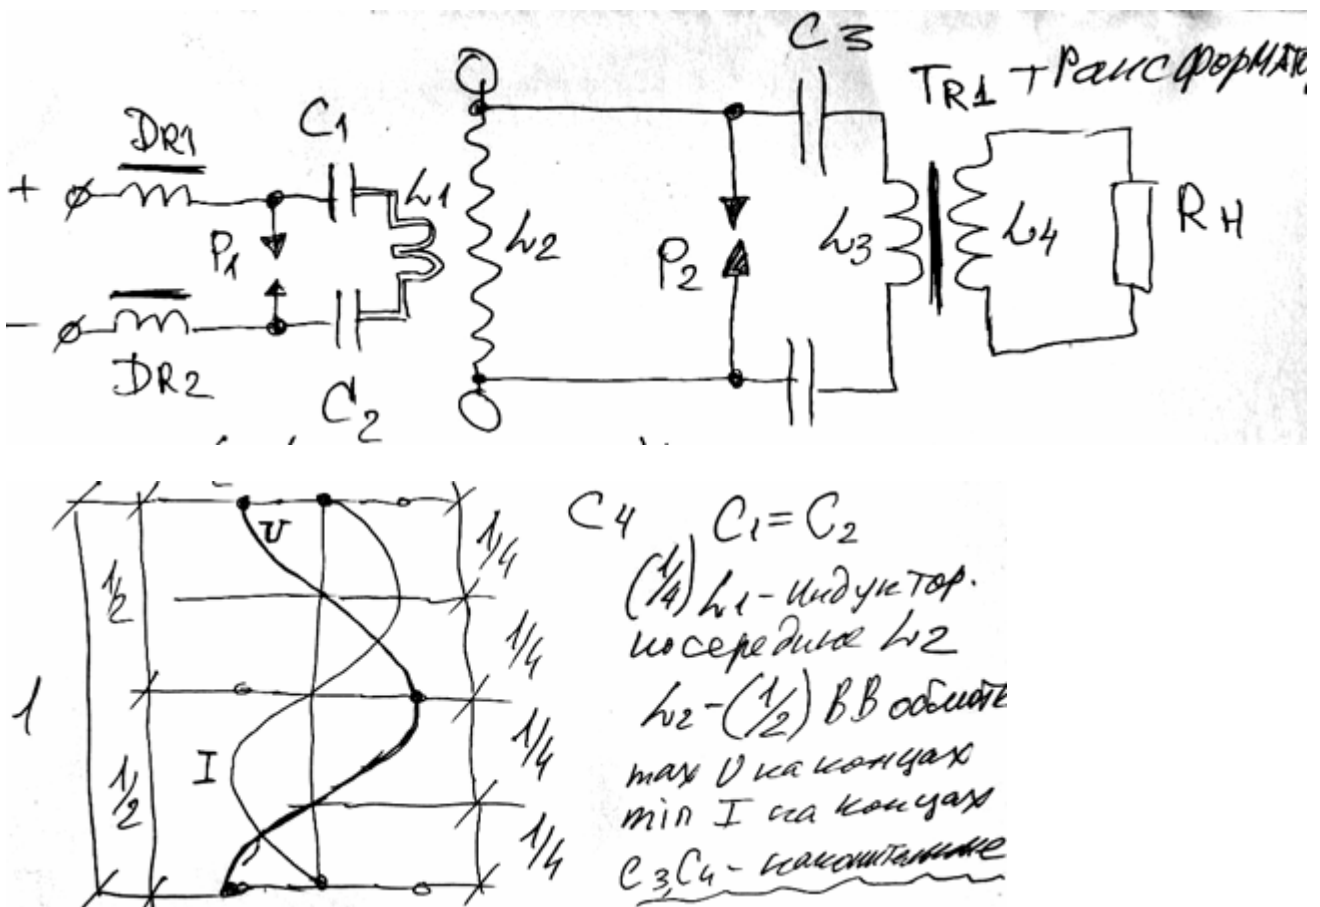 C3
TR1 трансформато
DR1
C1
+
L1
P1
L2
P2
L3
L4
RH
−
DR2
C2
U
1/4
C4 C1=C2
1/2
(1/4) L1-индуктор.
посередине L2
1/4
1
L2-(1/2) ВВ обмотк
I
1/4
max U на концах
1/2
min I на концах
1/4
C3,C4-накопительные